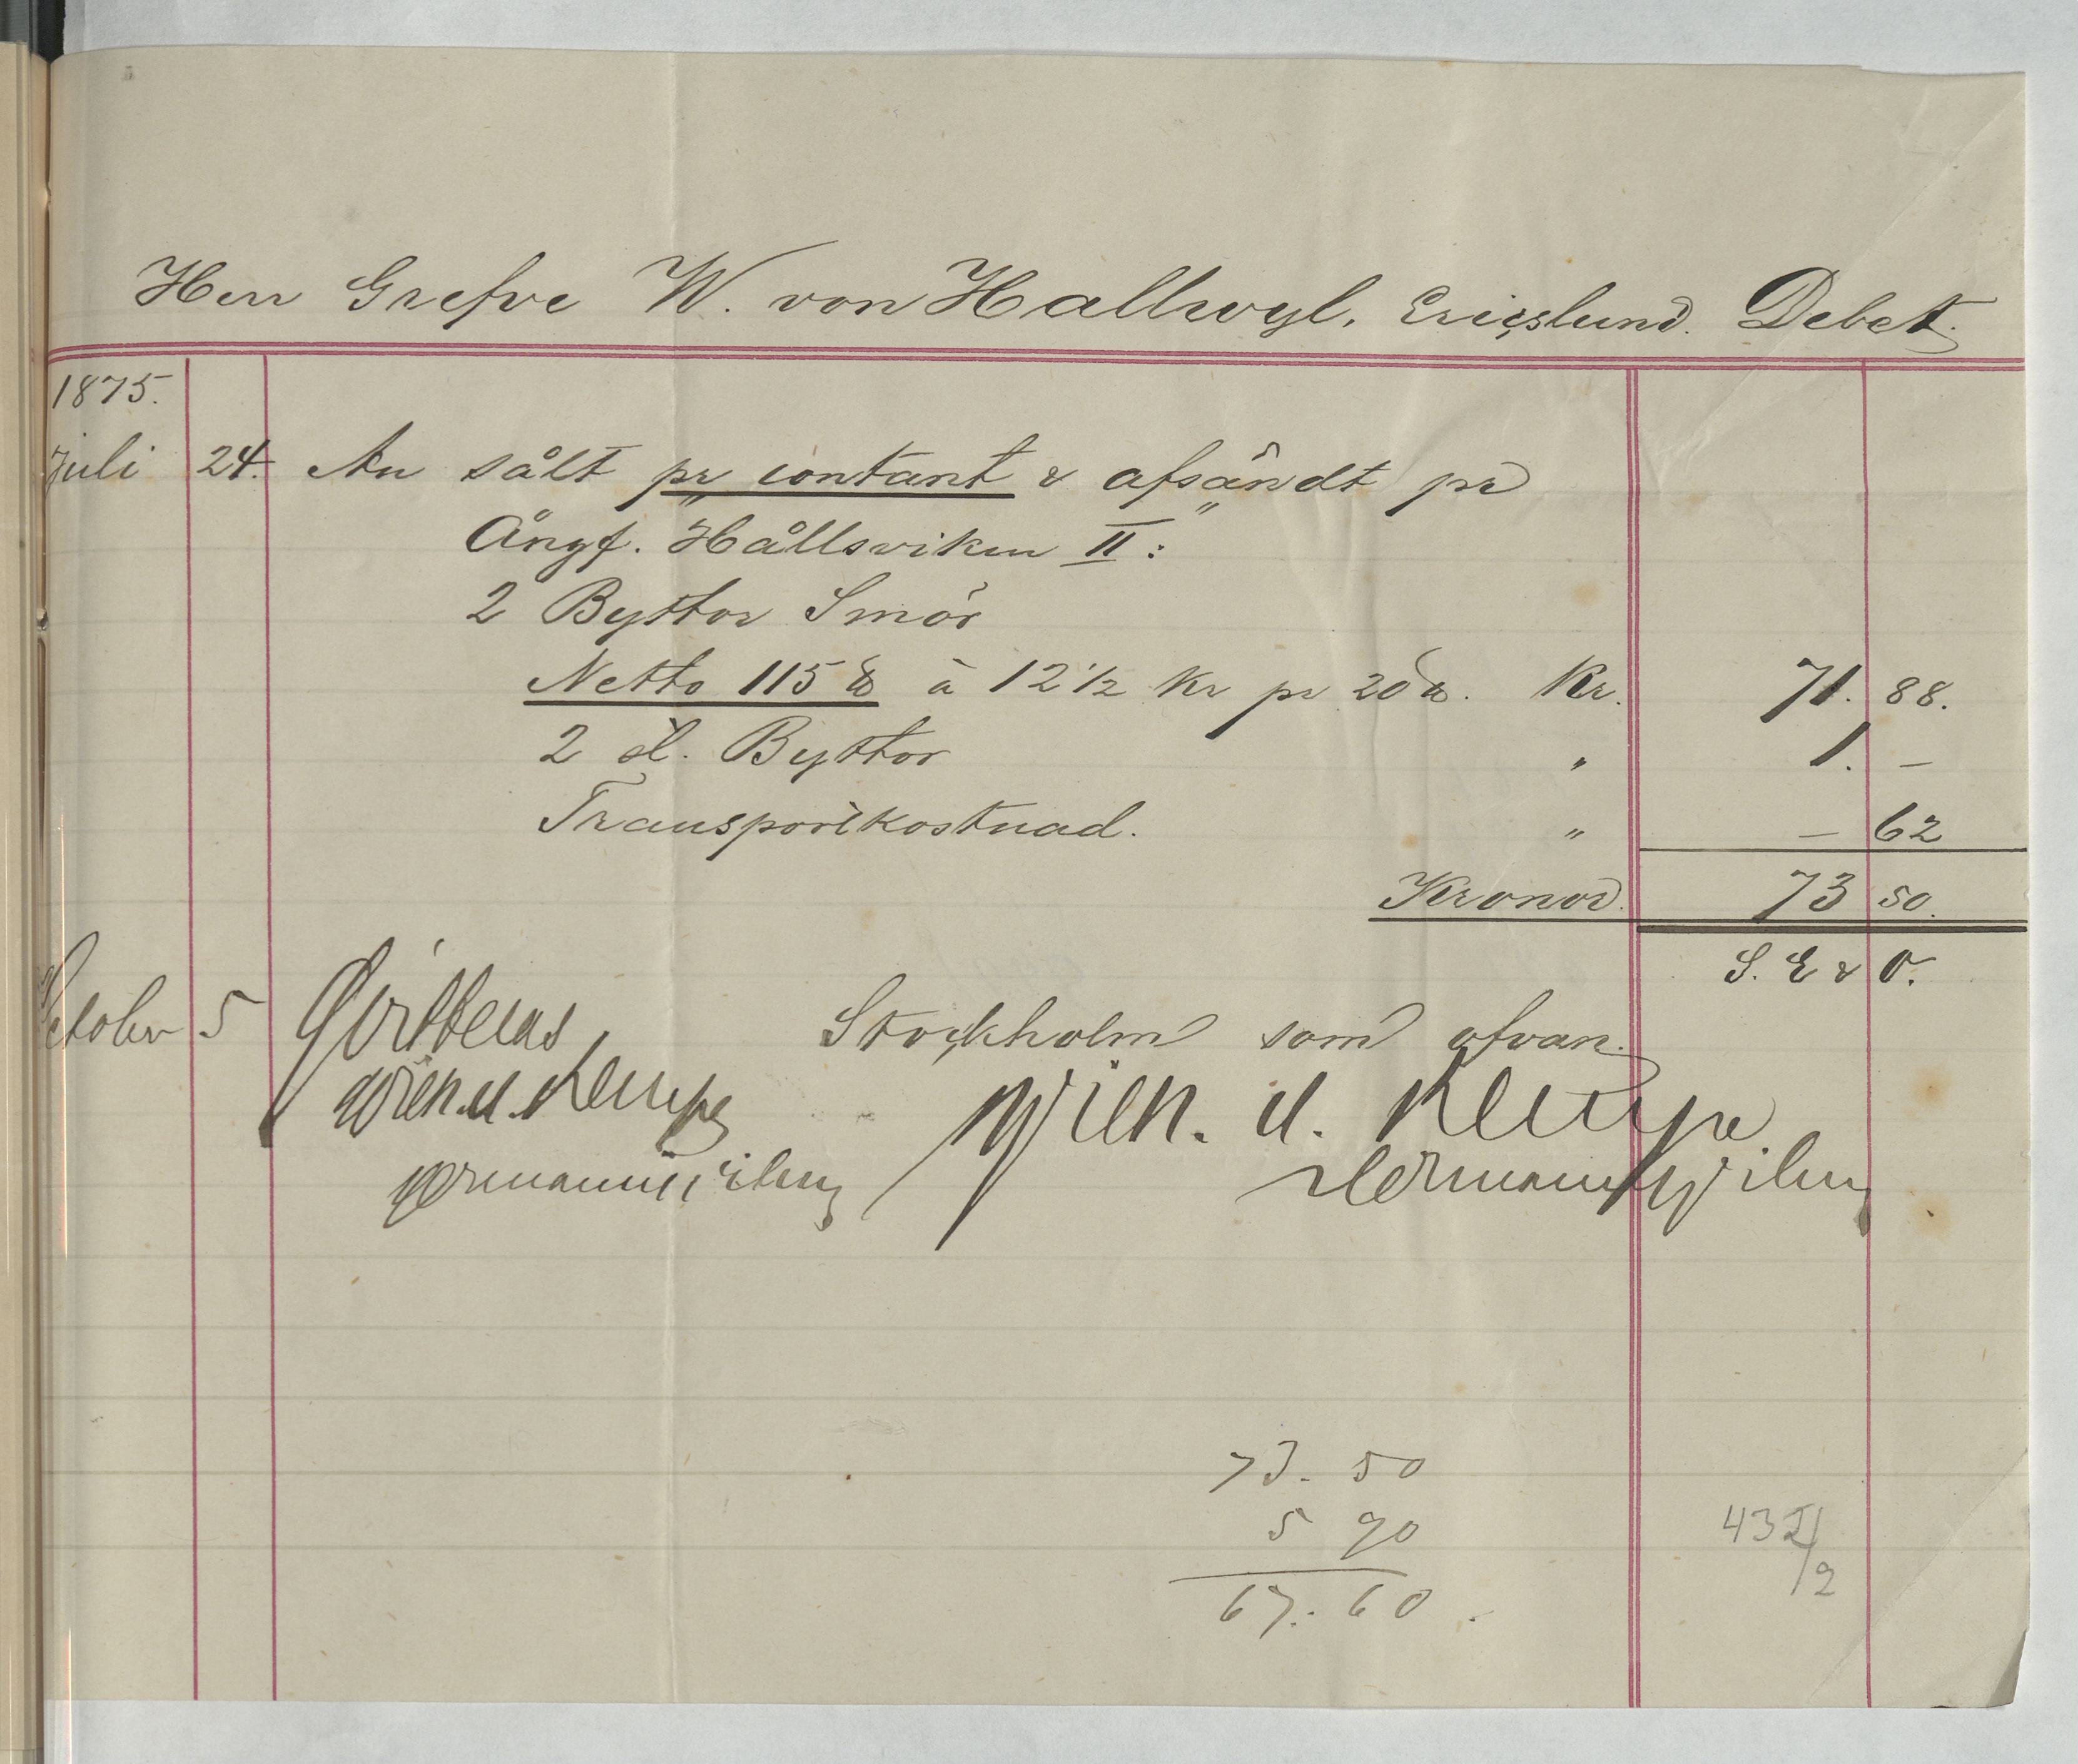 Herr Grefve W. von Hallwyl, Ericslund. Debet.
1875.
Juli 24. An sålt pr contant & afsändt pr
Ångf. "Hållsviken II":
2 Byttor Smör
Netto 115 ℔ à 12 1/2 Kr pr 20 ℔. Kr. 71. 88.
2 st. Byttor " 1. –
Transportkostnad. " – 62
Kronor. 73 50.
S. E & O.
October 5 Qvitteras Stockholm som ofvan.
Wich. u. Kempe Wich. u. Kempe
Hermann Hermann
73. 50
5 90
67. 60.
432/2